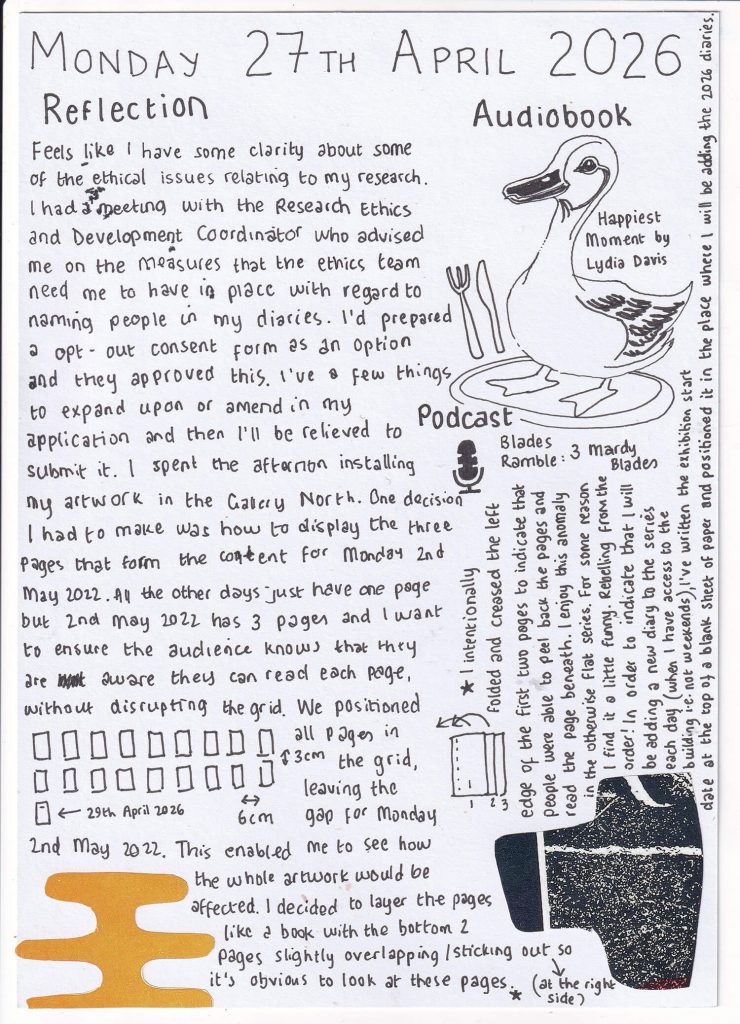 MONDAY 27TH APRIL 2026
Reflection
Feels like I have some clarity about some
of the ethical issues relating to my research.
I had a meeting with the Research Ethics
and Development Coordinator who advised
me on the measures that the ethics team
need me to have in place with regard to
naming people in my diaries. I'd prepared
a opt-out consent form as an option
and they approved this. I've a few things
to expand upon or amend in my
application and then I'll be relieved to
submit it. I spent the afternon installing
my artwork in the Gallery North. One decision
I had to make was how to display the three
pages that form the content for Monday 2nd
May 2022. All the other days just have one page
but 2nd May 2022 has 3 pages and I want
to ensure the audience knows that they
are aware they can read each page,
without disrupting the grid. We positioned
all pages in
the grid,
leaving the
gap for Monday
3cm
6cm
← 29th April 2026
2nd May 2022. This enabled me to see how
the whole artwork would be
affected. I decided to layer the pages
like a book with the bottom 2
pages slightly overlapping/sticking out so
it's obvious to look at these pages. *
(at the right
side)
Audiobook
Happiest
Moment by
Lydia Davis
Podcast
Blades
Ramble: 3 Mardy
Blades
* I intentionally
folded and creased the left
edge of the first two pages to indicate that
people were able to peel back the pages and
read the page beneath. I enjoy this anomaly
in the otherwise flat series. For some reason
I find it a little funny. Rebelling from the
order! In order to indicate that I will
be adding a new diary to the series
each day (when I have access to the
building i.e. not weekends), I've written the exhibition start
date at the top of a blank sheet of paper and positioned it in the place where I will be adding the 2026 diaries.
1 2 3